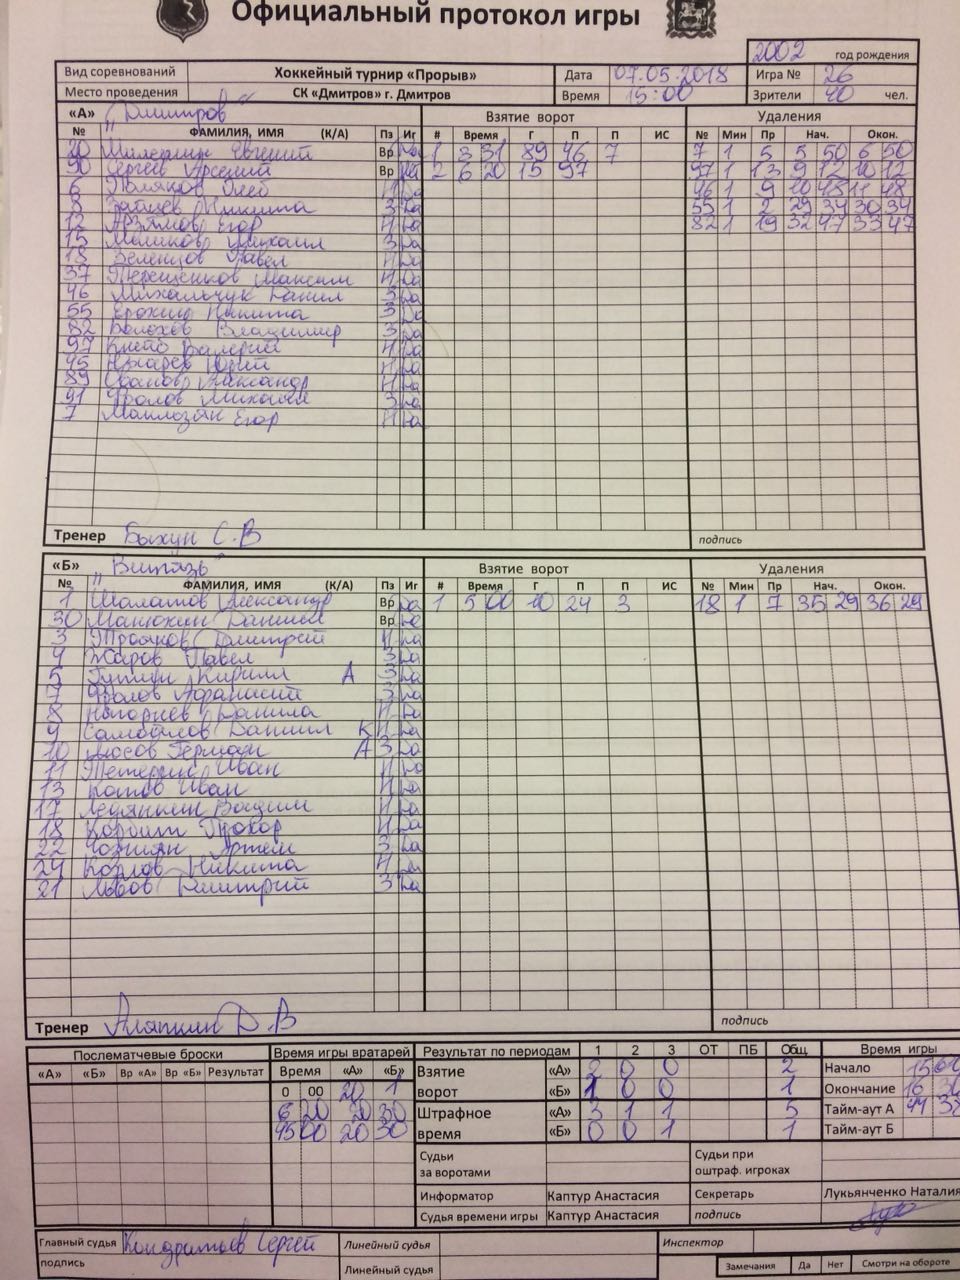 Официальный протокол игры
2002 год рождения
Вид соревнований Хоккейный турнир «Прорыв» Дата 07.05.2018 Игра № 26
Место проведения СК «Дмитров» г. Дмитров Время 15:00 Зрители 40 чел.
«А» "Дмитров" Взятие ворот Удаления
№ ФАМИЛИЯ, ИМЯ (К/А) Пз Иг # Время Г П П ИС № Мин Пр Нач. Окон.
20 Евгений Вр Да 1 3 31 89 46 7 7 1 5 5 50 6 50
90 Сергев Арсений Вр Да 2 6 20 15 97 97 1 13 9 12 10 12
6 Поляков Глеб Да 46 1 9 10 48 11 48
8 Зайцев Никита З Да 55 1 2 29 34 30 34
12 Арзямов Егор Н Да 82 1 19 32 47 33 47
15 Маликов Михаил З Да
18 Зеленцов Павел Н Да
37 Терещенков Максим Н Да
46 Михальчук Данил З Да
55 Ерохин Никита З Да
82 Болохов Владимир З Да
97 Валерий Н Да
95 Юрий Н Да
89 Александр Н Да
91 Фролов Михаил З Да
7 Манлозян Егор Н Да
Тренер Быхун С.В подпись
«Б» "Витязь" Взятие ворот Удаления
№ ФАМИЛИЯ, ИМЯ (К/А) Пз Иг # Время Г П П ИС № Мин Пр Нач. Окон.
1 Шаламов Александр Вр Да 1 5 00 10 24 3 18 1 7 35 29 36 29
30 Манюхин Даниил Вр Да
3 Трояков Дмитрий Н Да
4 Жаров Павел З Да
5 Кирилл А З Да
7 Фролов Афанасий З Да
8 Нагорнев Данила Н Да
9 Самойлов Даниил К Н Да
10 Носов Герман А З Да
11 Тетерин Иван Н Да
13 Котов Иван Н Да
17 Ледянкин Вадим Н Да
18 Корбит Прохор Н Да
22 Артём З Да
24 Козлов Никита Н Да
21 Львов Дмитрий З Да
Тренер Аляпкин Д.В подпись
Послематчевые броски Время игры вратарей Результат по периодам 1 2 3 ОТ ПБ Общ Время игры
«А» «Б» Вр «А» Вр «Б» Результат Время «А» «Б» Взятие «А» 2 0 0 2 Начало 15
0 00 20 1 ворот «Б» 1 0 0 1 Окончание 16
6 20 20 30 Штрафное «А» 3 1 1 5 Тайм-аут А 44 38
45 00 20 30 время «Б» 0 0 1 1 Тайм-аут Б
Судьи за воротами Судьи при оштраф. игроках
Информатор Каптур Анастасия Секретарь Лукьянченко Наталия
Судья времени игры Каптур Анастасия подпись
Главный судья Кондратьев Сергей Линейный судья Инспектор
подпись Линейный судья Замечания Да Нет Смотри на обороте